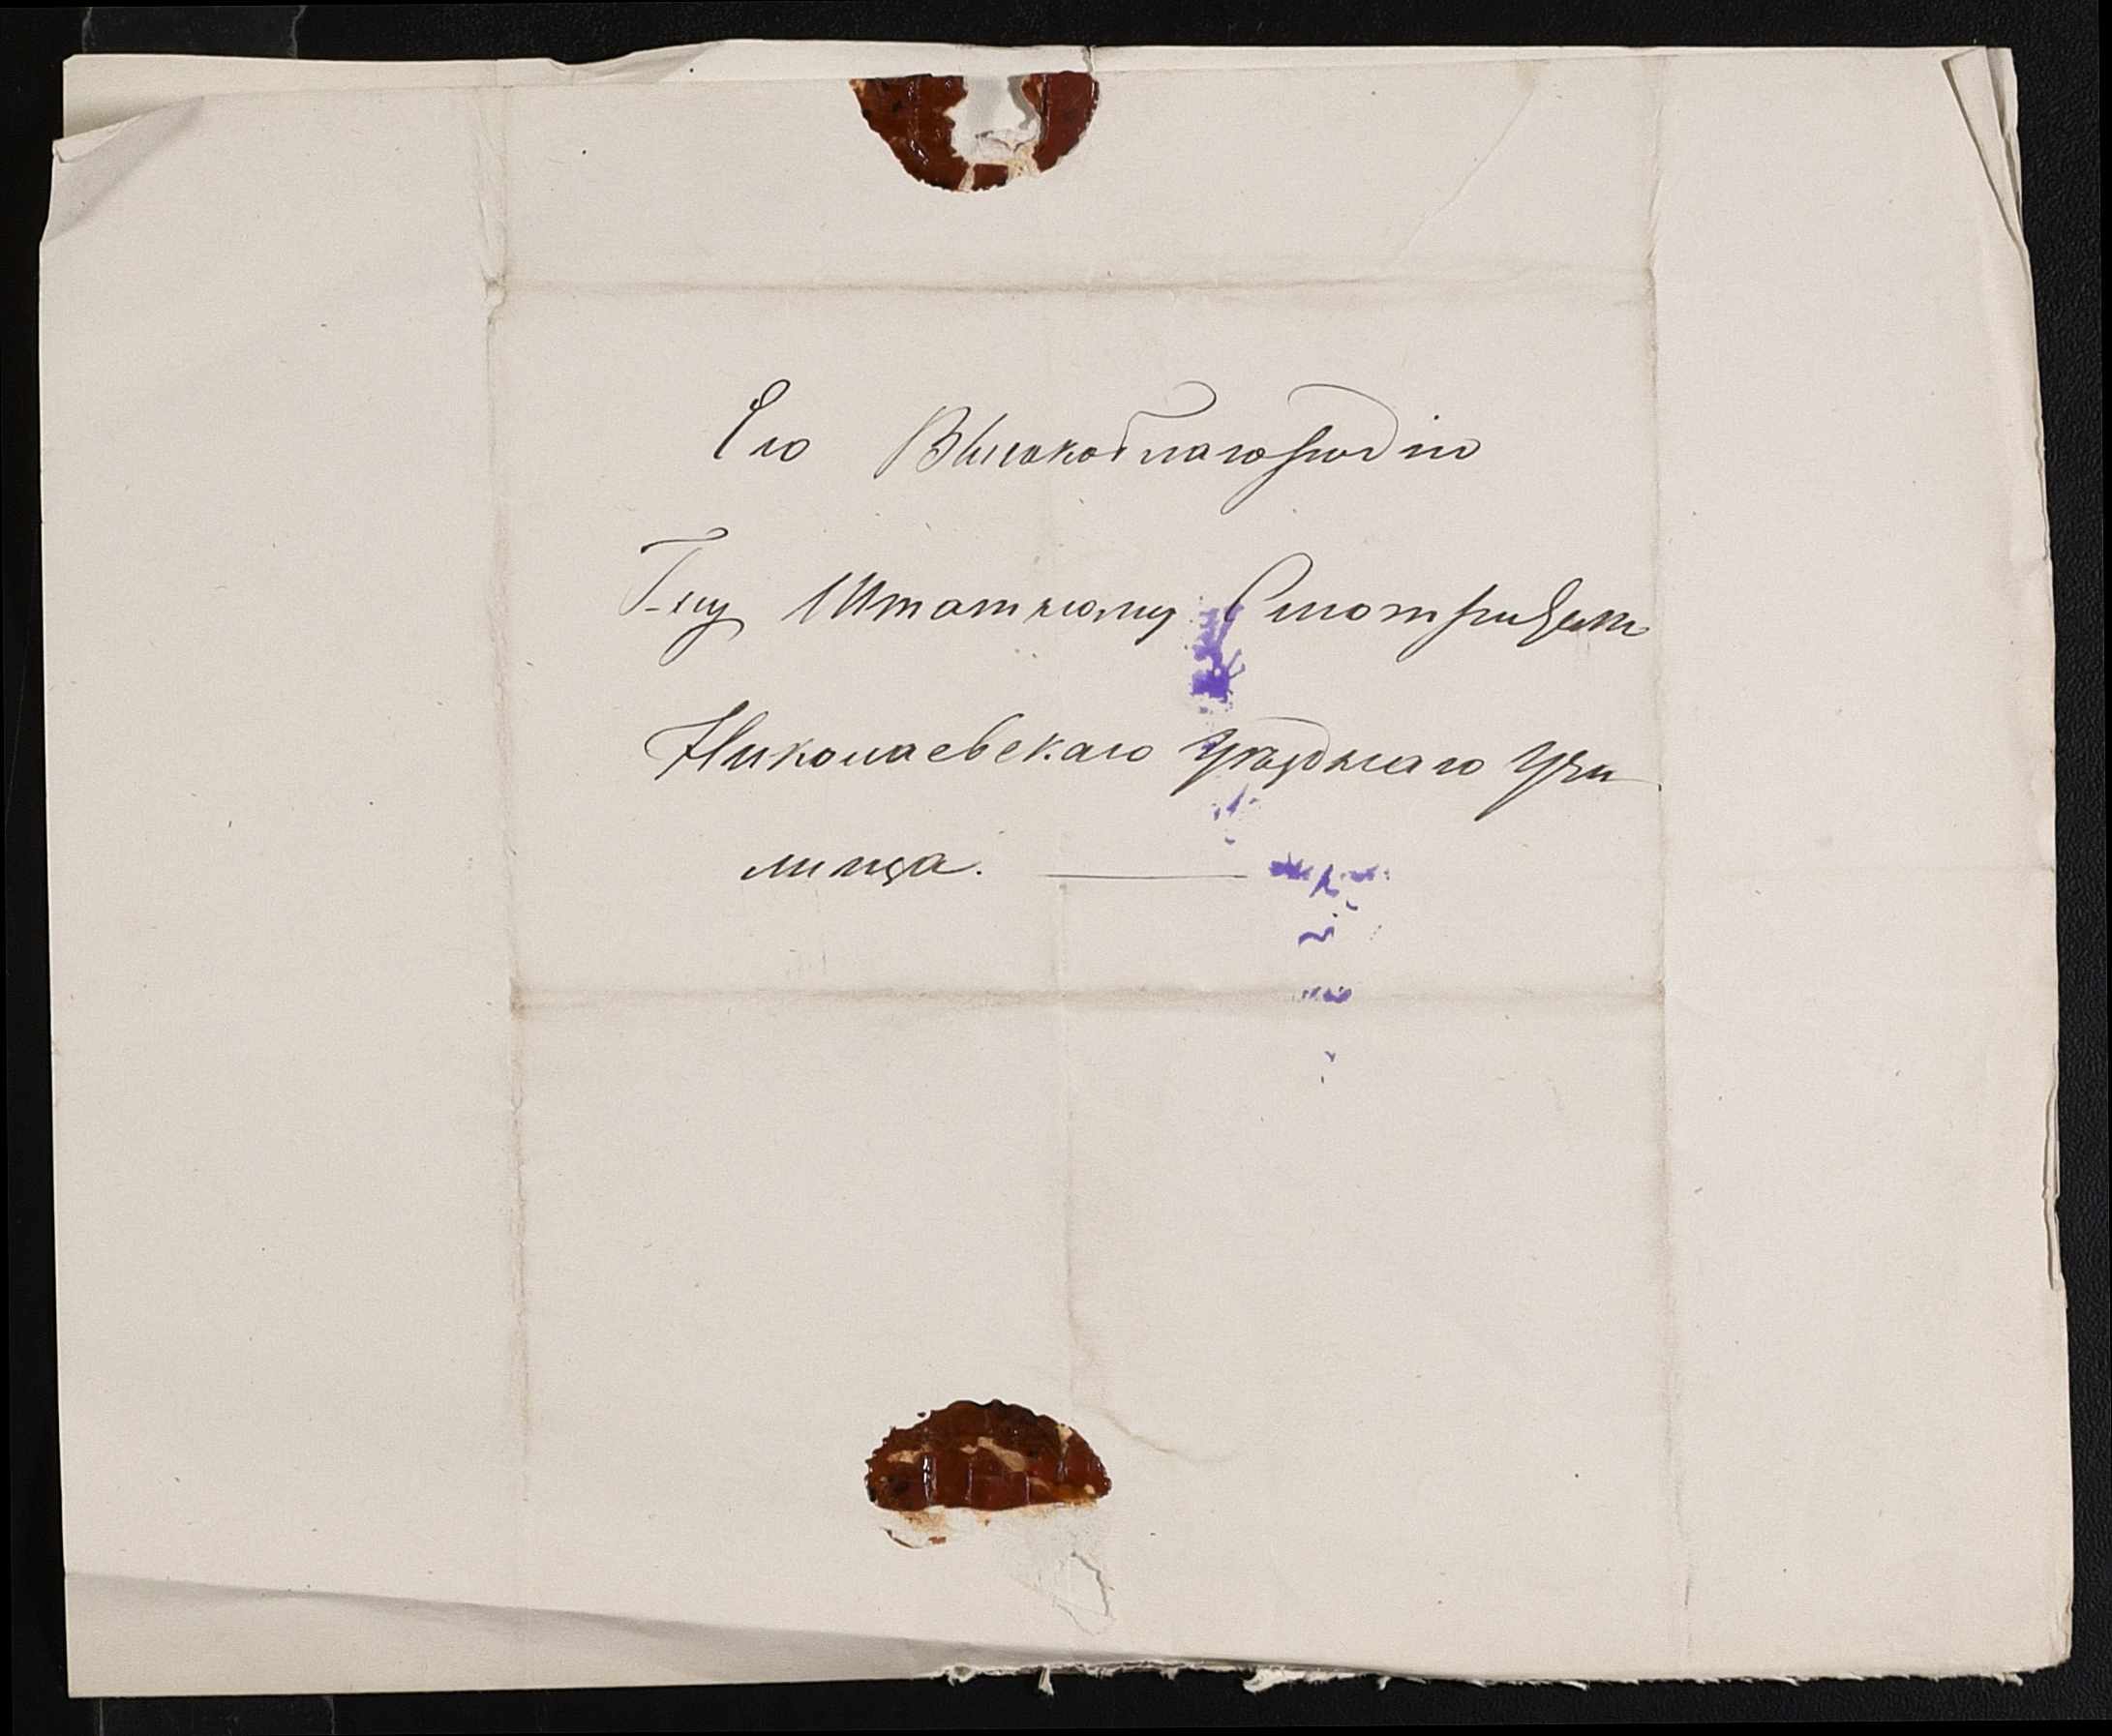 Его Высокоблагородію
Г-ну Штатному Смотрителю
Николаевскаго Уѣзднаго Учи
лища.